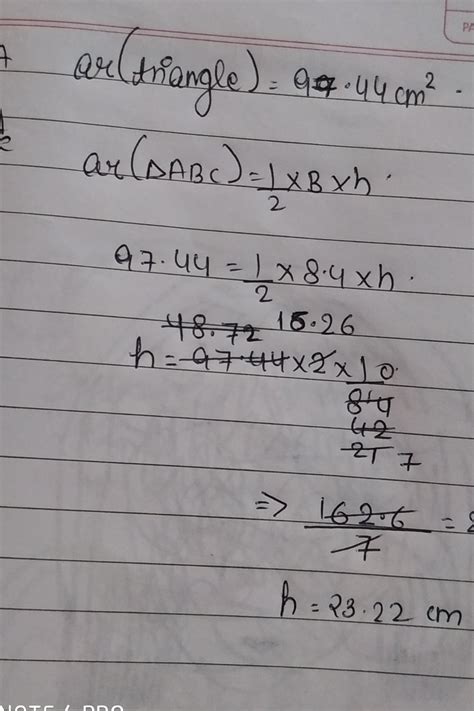 ar(triangle) = 97.44 cm² .
ar(△ABC) = 1/2 × B × h .
97.44 = 1/2 × 8.4 × h .
48.72 16.26
h = 97.44 × 2 × 10
84
42
21 7
⇒ 162.6 / 7 =
h = 23.22 cm